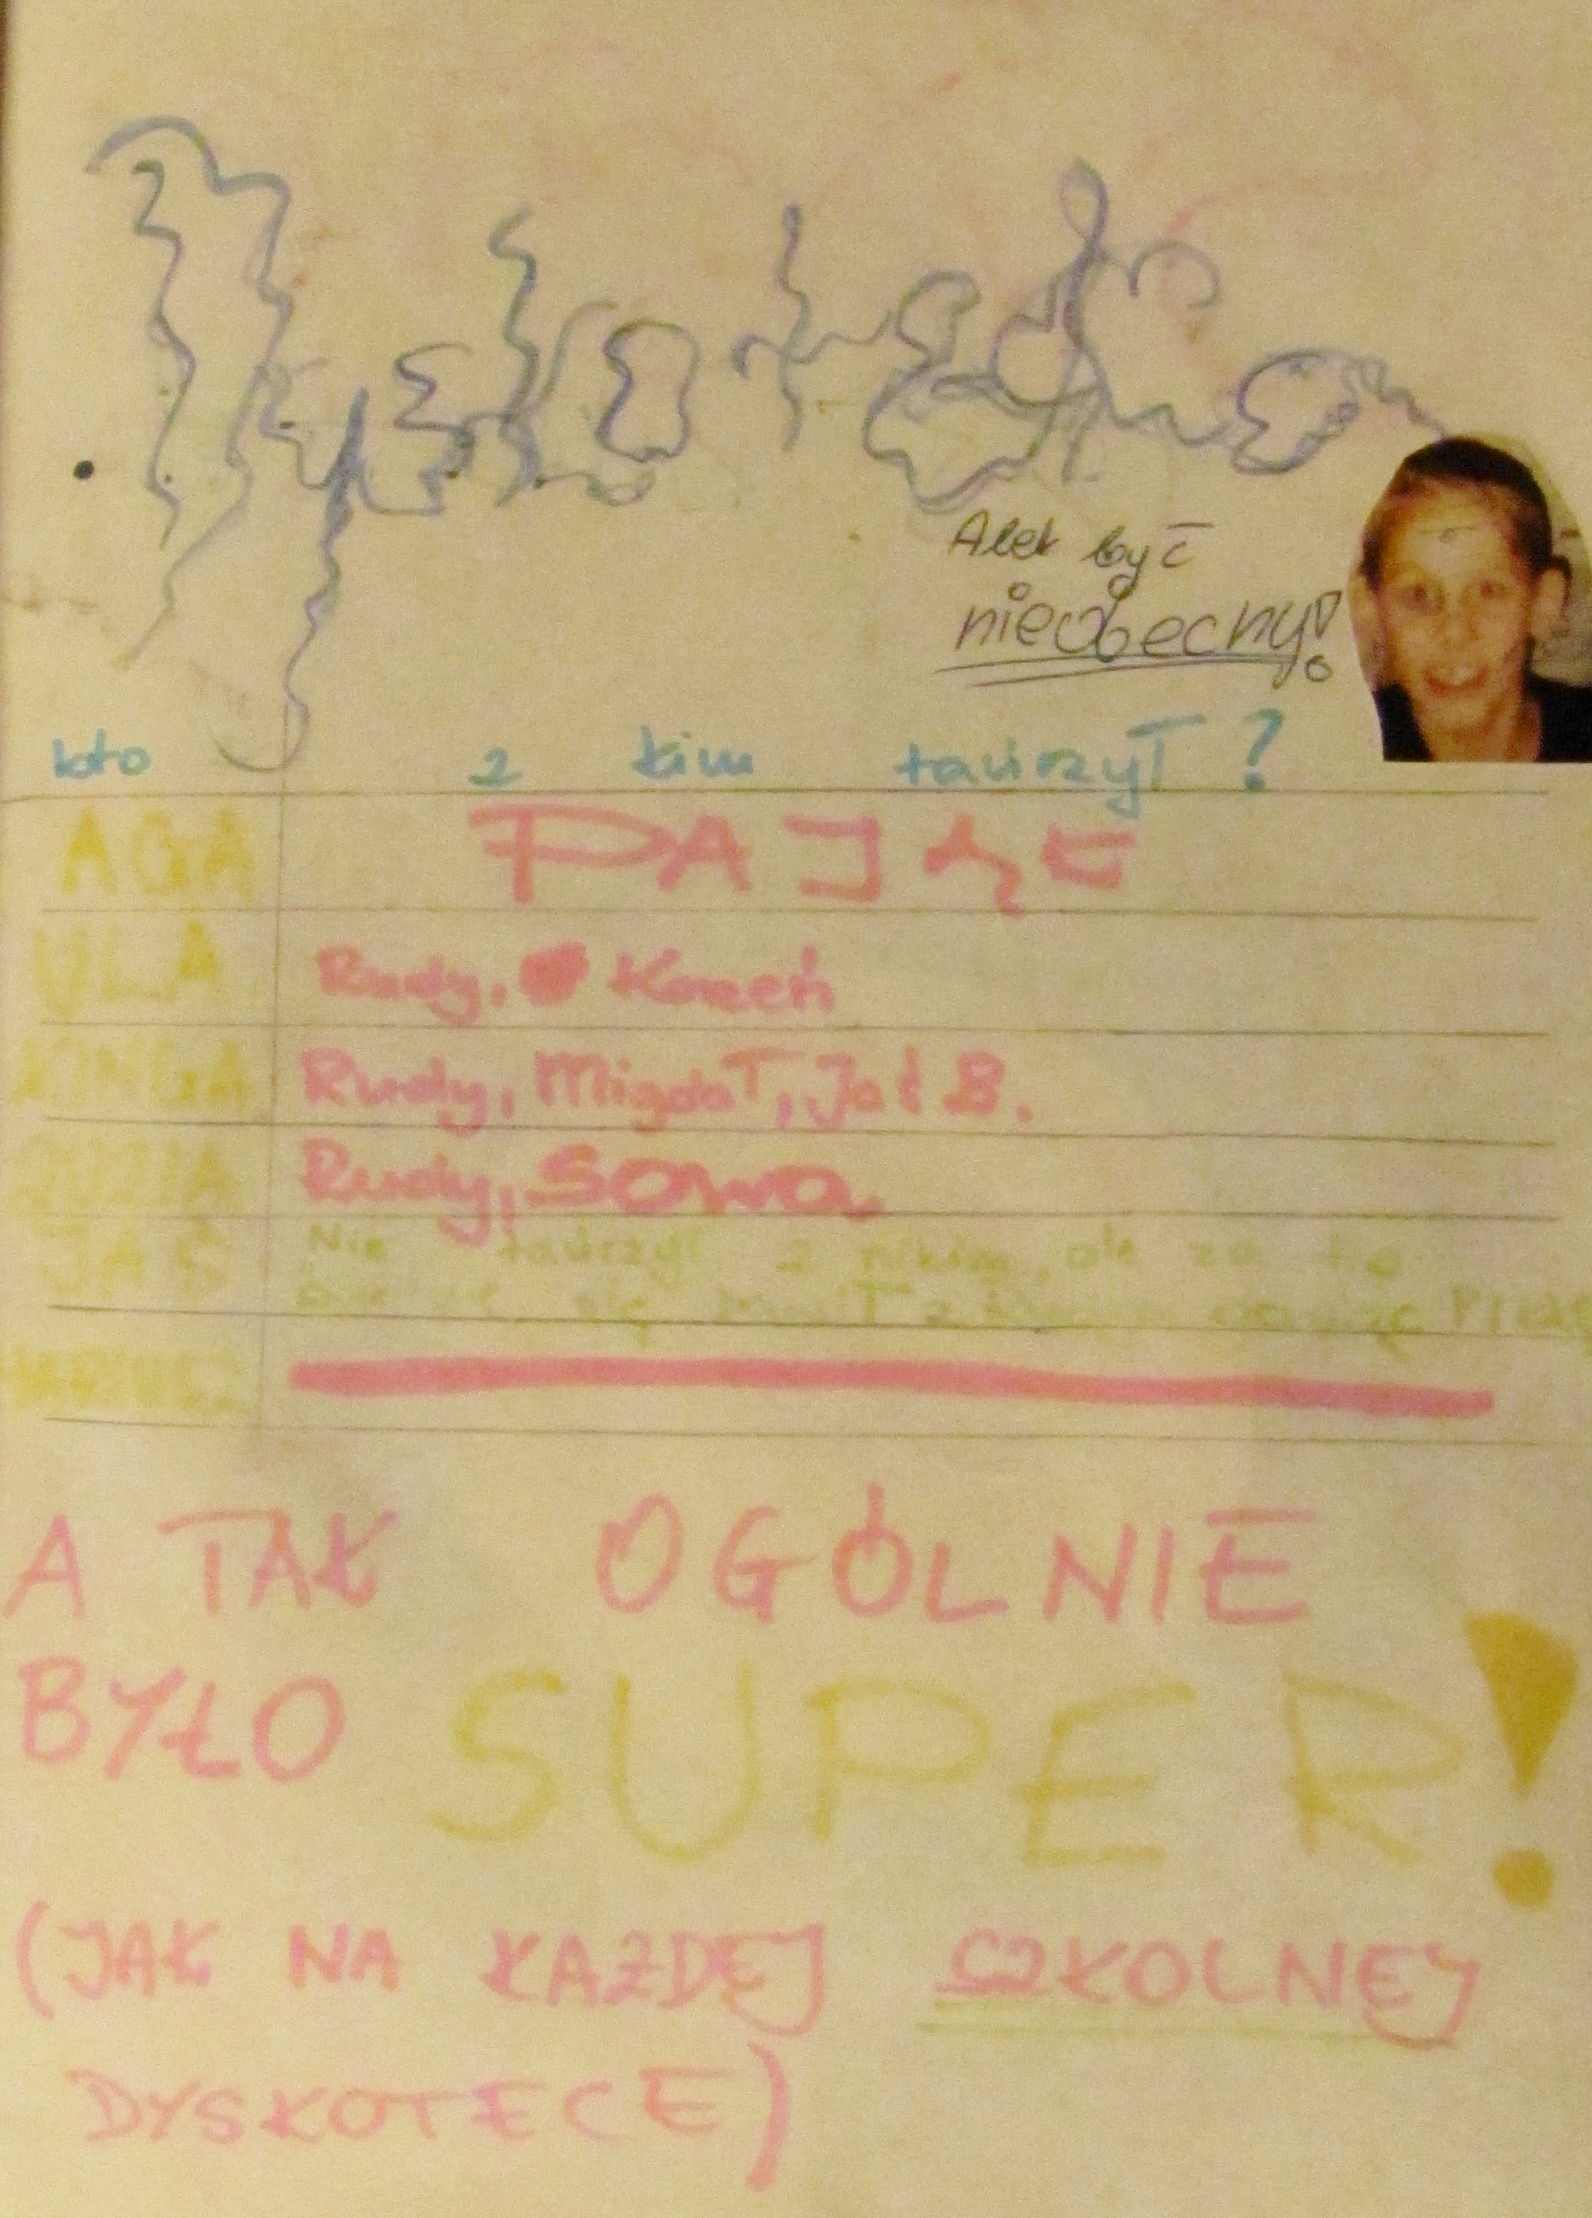 Alek być
nieobecny!
kto z kim tańczył?
AGA PAJĄK
ULA Rudy, Korzeń
KINGA Rudy, Migdał, Jaś B.
ZUZIA Rudy, Sowa
JAŚ Nie tańczył z nikim, ale za to
się z
A TAK OGÓLNIE
BYŁO SUPER!
(JAK NA KAŻDEJ SZKOLNEJ
DYSKOTECE)